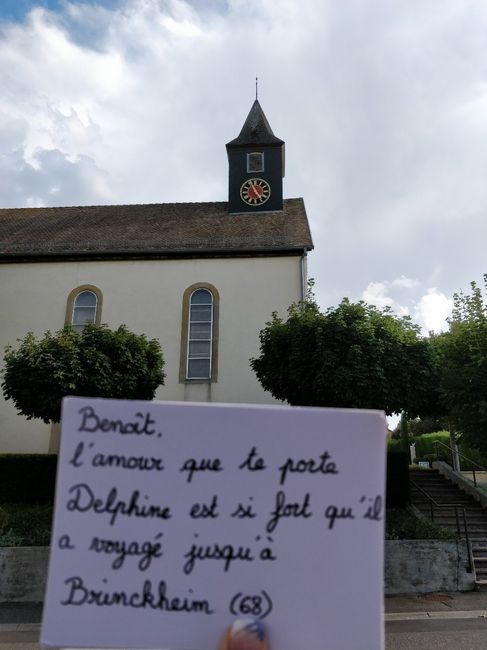 Benoît,
l'amour que te porte
Delphine est si fort qu'il
a voyagé jusqu'à
Brinckheim (68)